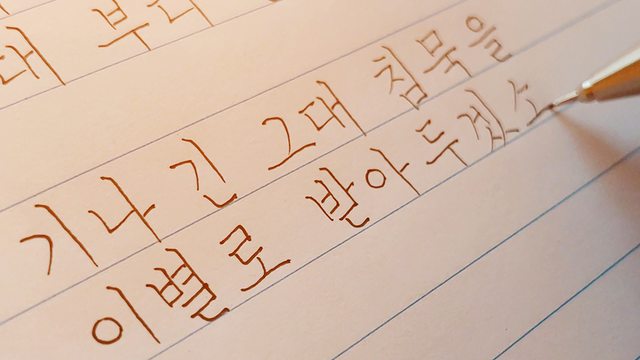 대 부디
기나긴 그대 침묵을
이별로 받아두겠소